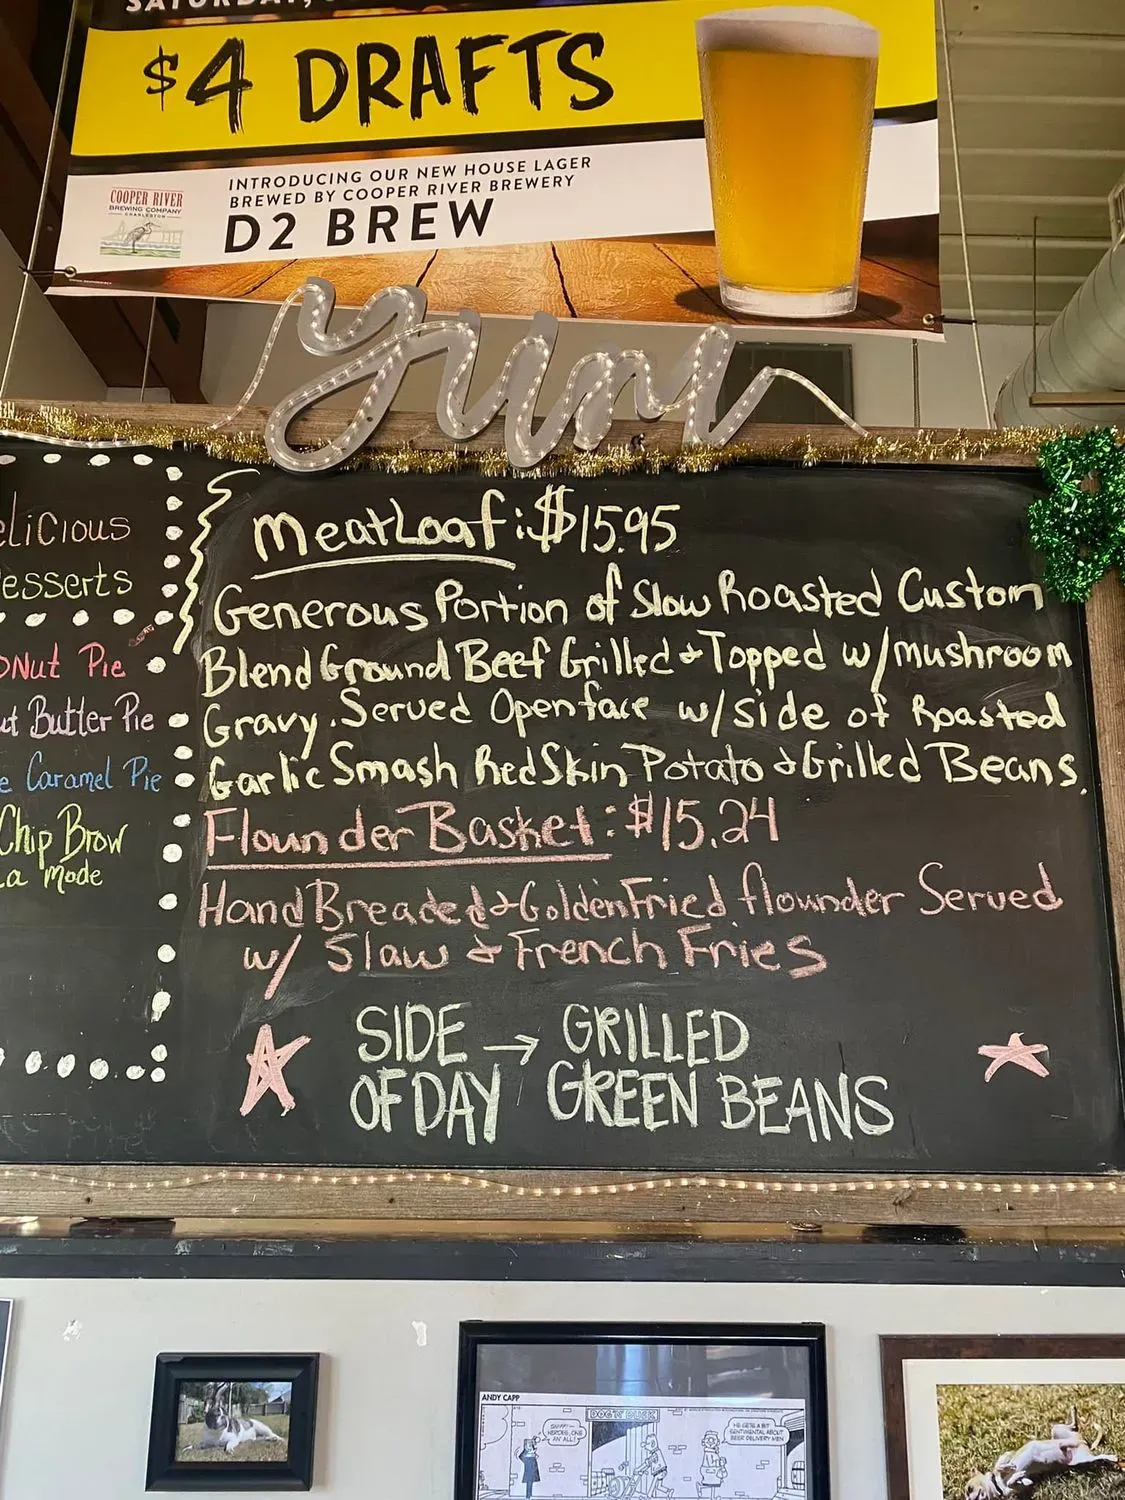 $4 DRAFTS
INTRODUCING OUR NEW HOUSE LAGER
BREWED BY COOPER RIVER BREWERY
D2 BREW
COOPER RIVER
BREWING COMPANY
CHARLESTON
yum
MeatLoaf: $15.95
Generous Portion of Slow Roasted Custom
Blend Ground Beef Grilled & Topped w/mushroom
Gravy. Served Openface w/side of Roasted
Garlic Smash RedSkin Potato & Grilled Beans.
Flounder Basket: $15.24
Hand Breaded & Golden Fried flounder Served
w/ Slaw & French Fries
SIDE → GRILLED
OF DAY GREEN BEANS
Pie
Butter Pie
Caramel Pie
Chip Brow
La Mode
ANDY CAPP
DOG 'N' DUCK
HE GETS A BIT
SENTIMENTAL ABOUT
BEER DELIVERY MEN